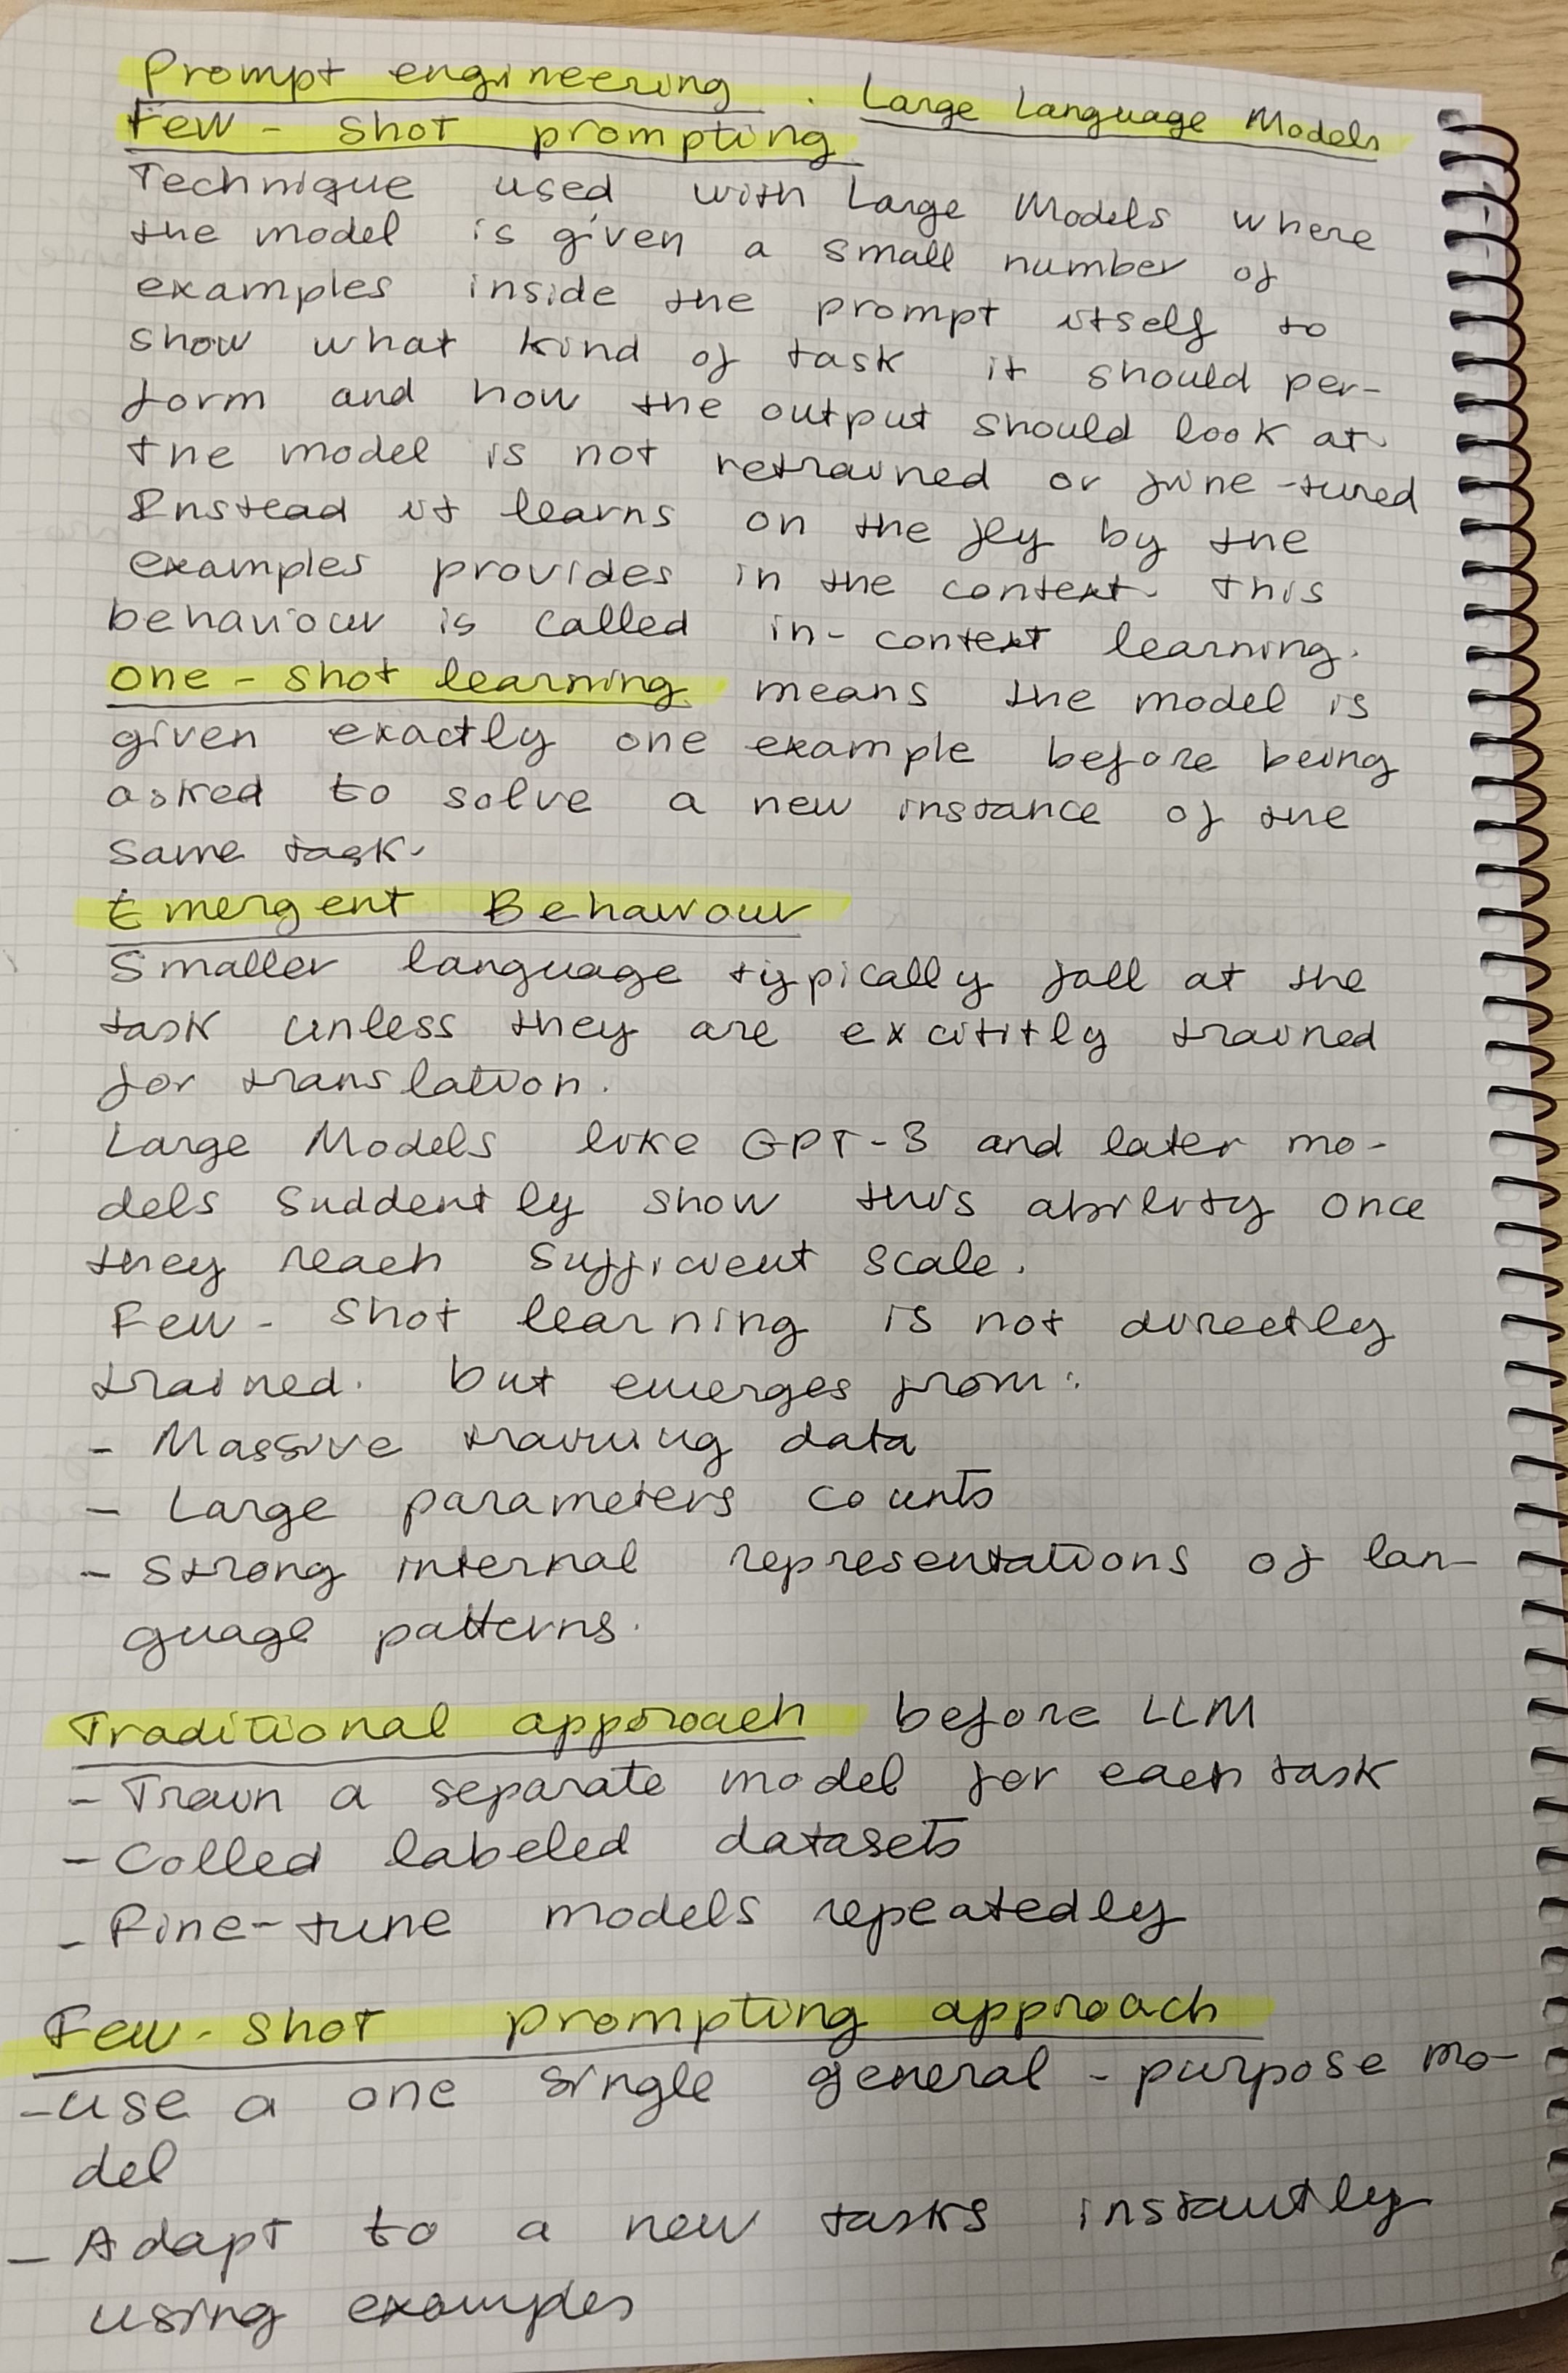 Prompt engineering. Large Language Models
Few - shot prompting
Technique used with Large Models where
the model is given a small number of
examples inside the prompt itself to
show what kind of task it should per-
form and how the output should look at.
the model is not retrained or fine-tuned
Instead it learns on the fly by the
examples provides in the context. This
behaviour is called in-context learning.
One - shot learning. means the model is
given exactly one example before being
asked to solve a new instance of the
same task.
Emergent Behaviour
Smaller language typically fall at the
task unless they are excititly trained
for translation.
Large Models like GPT-3 and later mo-
dels suddently show this ability once
they reach sufficient scale.
Few - shot learning is not directly
trained. but emerges from:
- Massive training data
- Large parameters counts
- Strong internal representations of lan-
guage patterns.
Traditional approach before LLM
- Train a separate model for each task
- Colled labeled datasets
- Fine-tune models repeatedly
Few - shot prompting approach
- use a one single general - purpose mo-
del
- Adapt to a new tasks instantly
using examples